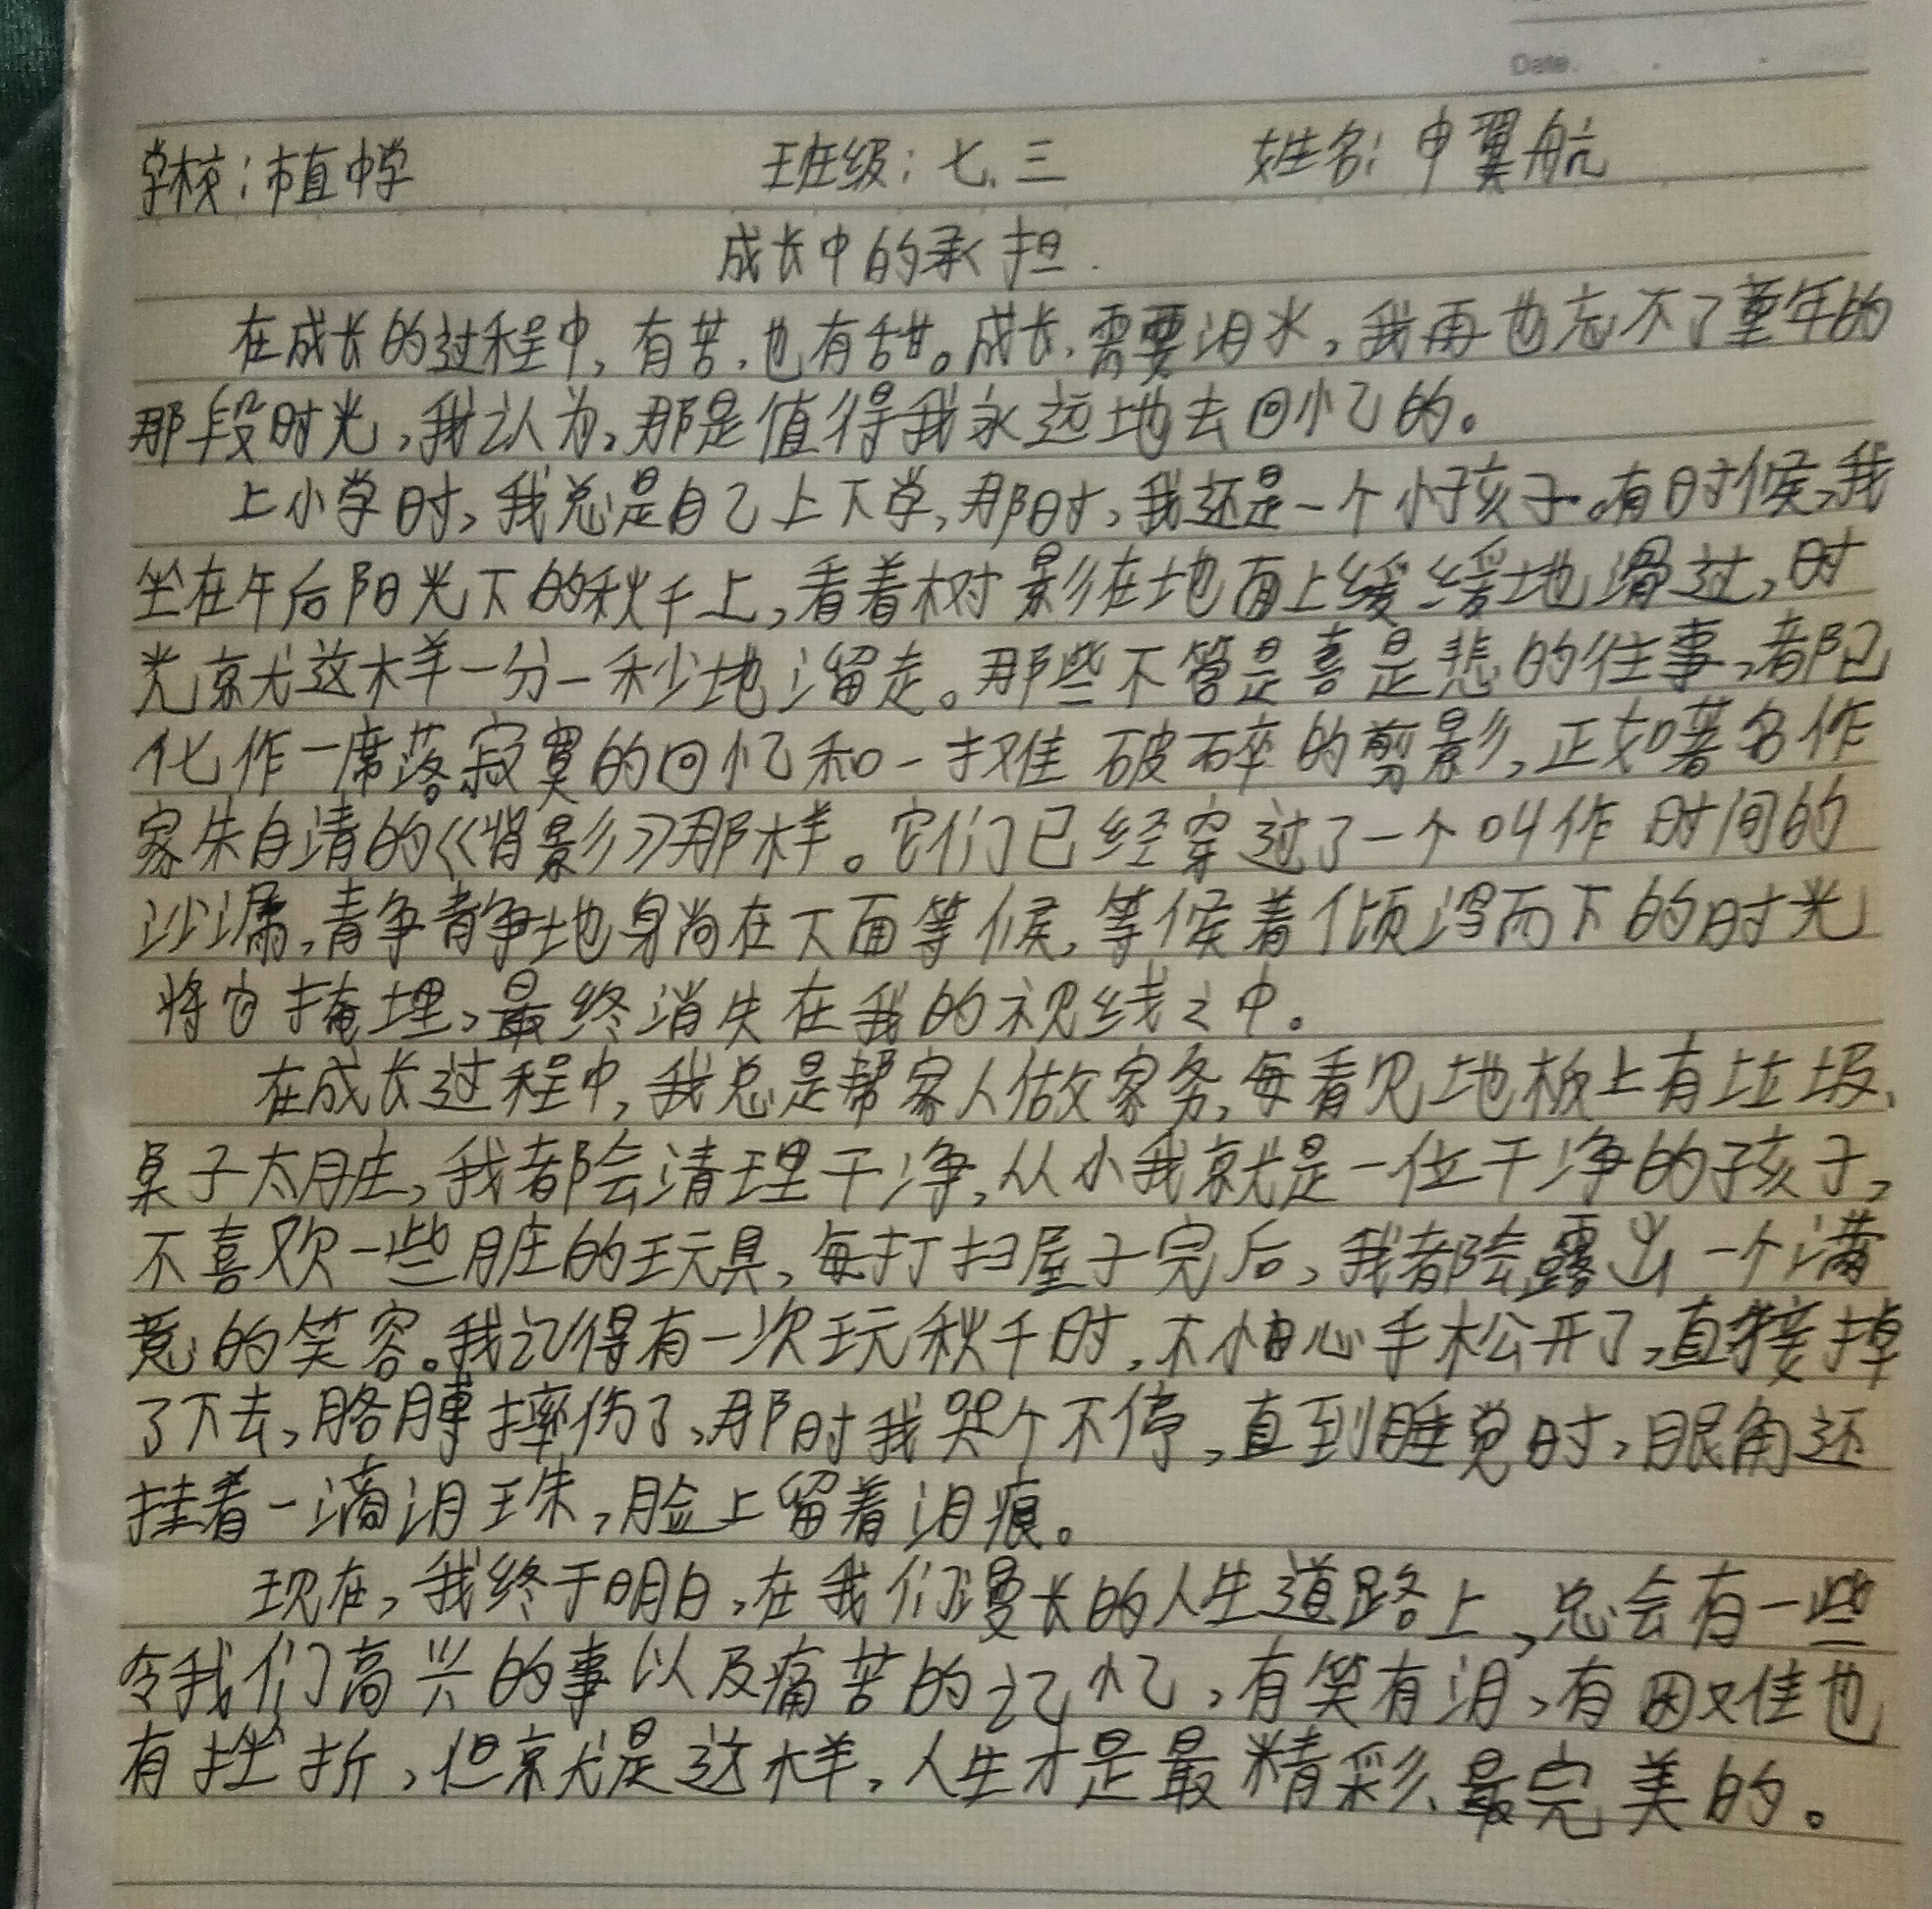 Date.
学校:市直中学 班级:七.三 姓名:申翼航
成长中的承担.
在成长的过程中,有苦,也有甜。成长,需要泪水,我再也忘不了童年的
那段时光,我认为,那是值得我永远地去回忆的。
上小学时,我总是自己上下学,那时,我还是一个小孩子。有时候,我
坐在午后阳光下的秋千上,看着树影在地面上缓缓地滑过,时
光就这样一分一秒地溜走。那些不管是喜是悲的往事,都已
化作一席落寂寞的回忆和一堆破碎的剪影,正如著名作
家朱自清的《背影》那样。它们已经穿过了一个叫作时间的
沙漏,静静地躺在下面等候,等候着倾泻而下的时光
将它掩埋,最终消失在我的视线之中。
在成长过程中,我总是帮家人做家务,每看见地板上有垃圾、
桌子太脏,我都会清理干净,从小我就是一位干净的孩子,
不喜欢一些脏的玩具,每打扫屋子完后,我都会露出一个满
意的笑容。我记得有一次玩秋千时,不小心手松开了,直接掉
了下去,胳膊摔伤了,那时我哭个不停,直到睡觉时,眼角还
挂着一滴泪珠,脸上留着泪痕。
现在,我终于明白,在我们漫长的人生道路上,总会有一些
令我们高兴的事以及痛苦的记忆,有笑有泪,有困难也
有挫折,但就是这样,人生才是最精彩、最完美的。